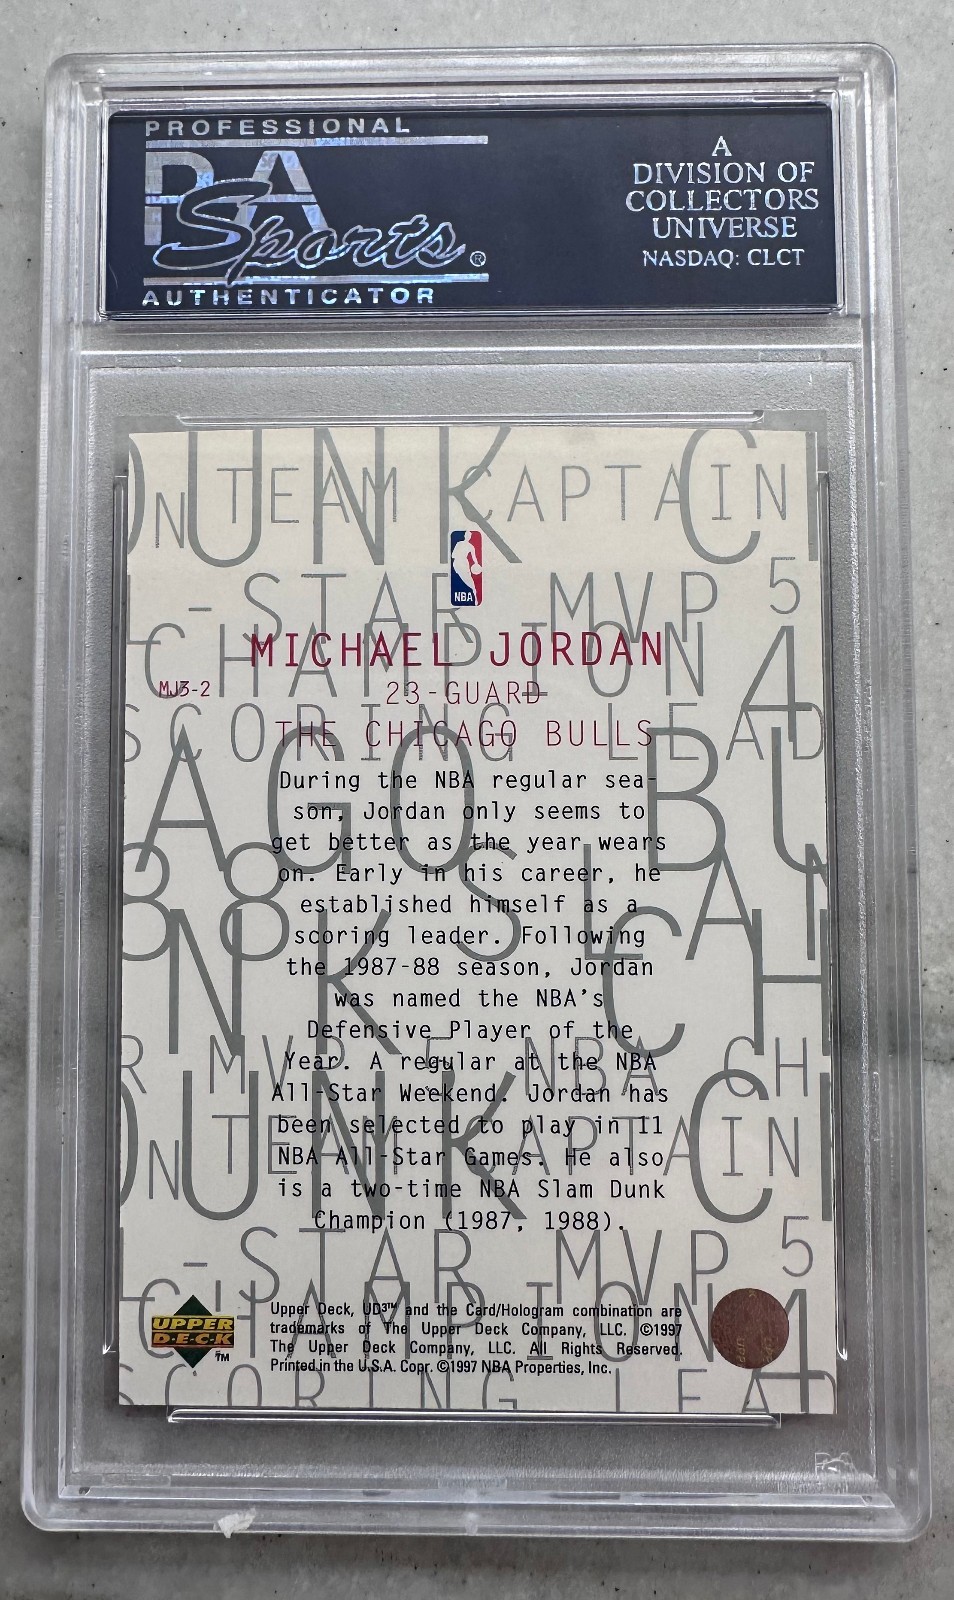 PROFESSIONAL
PSA
Sports®
AUTHENTICATOR
A
DIVISION OF
COLLECTORS
UNIVERSE
NASDAQ: CLCT
UNK C
ON TEAM CAPTAIN
NBA
-STAR MVP 5
CHAMPION 4
MICHAEL JORDAN
MJ3-2
23-GUARD
SCORING LEAD
THE CHICAGO BULLS
AGO BU
During the NBA regular sea-
son, Jordan only seems to
get better as the year wears
on. Early in his career, he
established himself as a
scoring leader. Following
the 1987-88 season, Jordan
was named the NBA's
Defensive Player of the
Year. A regular at the NBA
All-Star Weekend. Jordan has
been selected to play in 11
NBA All-Star Games. He also
is a two-time NBA Slam Dunk
Champion (1987, 1988).
88 SLA
NK CH
R MVP 5 NBA CH
UNK C
ON TEAM CAPTAIN
-STAR MVP 5
CHAMPION 4
UPPER
D·E·C·K
TM
Upper Deck, UD3™ and the Card/Hologram combination are
trademarks of The Upper Deck Company, LLC. ©1997
The Upper Deck Company, LLC. All Rights Reserved.
Printed in the U.S.A. Copr. ©1997 NBA Properties, Inc.
SCORING LEAD
PSA